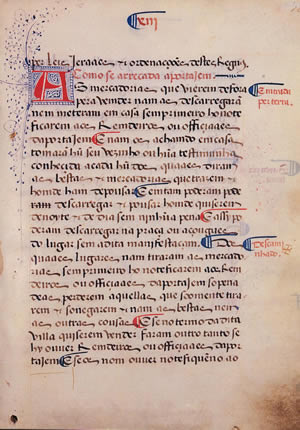 xiij
por leix Jeraaes & ordenaçoões destes Regnos
Como se arrecada aportajem
AS mercadorias que vierem de fora
pera vender nam as descarregarã
nem meteram em casa sem primeiro ho note
ficarem aos Remdeiros ou officiaaes da
portajem E nam os achando em casa
tomará huũ seu vezinho ou huũa testimunha
conheçida acada huũ dos quaaes diram
as bestas & mercadorias que trazem &
homde ham de pousar E emtam poderam pode
ram descarregar & pousar homde quiserem
de noyte & de dia sem nihũa pena E assy po
deram descarregar na praça ou açougues
do lugar sem a dita manifestaçam Dos
quaaes lugares nam tiraram as mercado
rias sem primeiro ho noteficarem aos Rem
deiros ou officiaaes da portajem so pena
de as perderem aquellas que somente tira
rem & sonegarem & nam as bestas nem
as outras cousas E se no termo da dita
Villa quiserem vender faram outro tanto se
hy ouver Remdeiros ou officiaaes da por
tajem E se os nom ouver notefiquẽno ao
Emtrada
per terra.
Descami
nhado.